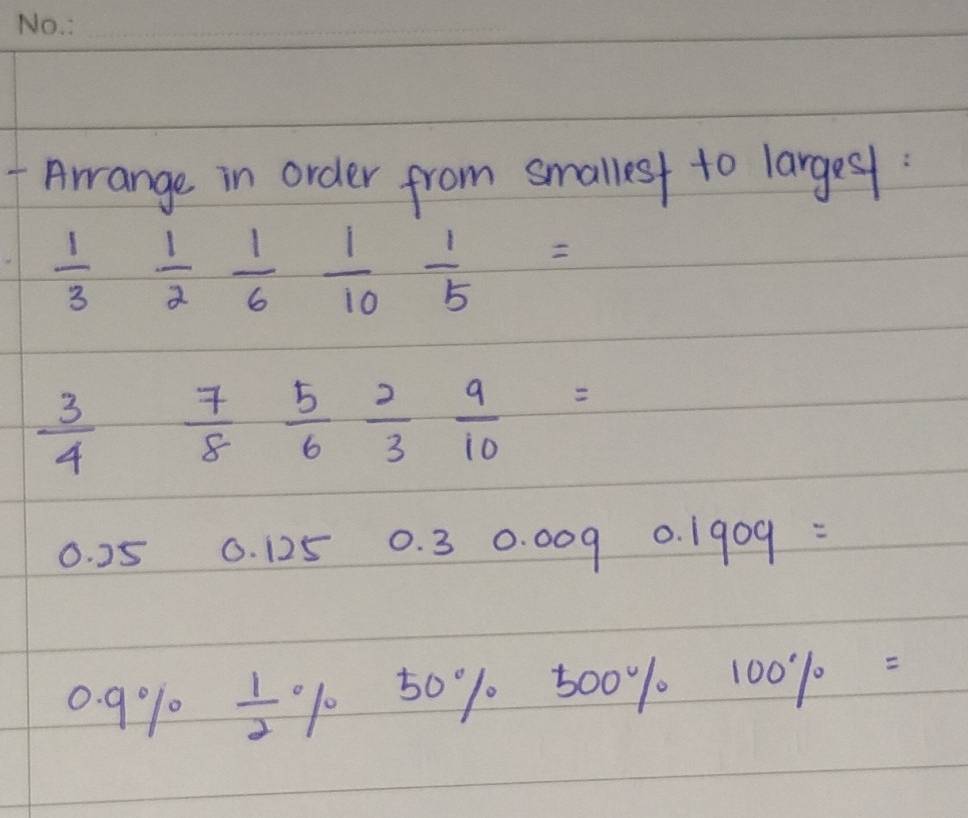 No.:
- Arrange in order from smallest to largest :
1/3 1/2 1/6 1/10 1/5 =
3/4 7/8 5/6 2/3 9/10 =
0.25 0.125 0.3 0.009 0.1909 =
0.9% 1/2% 50% 500% 100% =